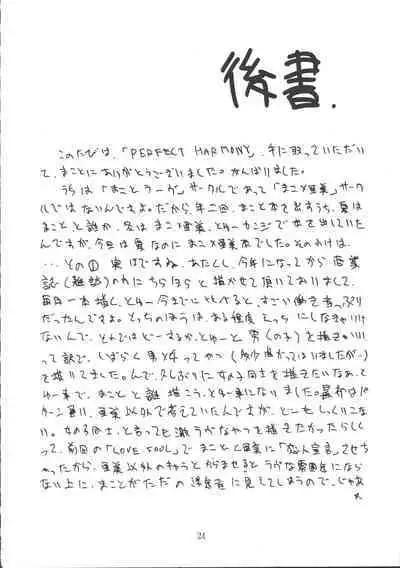 後書.
このたびは、「PERFECT HARMONY」、手に取っていただいて、まことにありがとうございました。がんばりました。
うちは「まことラーヴ」サークルであって「まこ×亜美」サークルではないんですよ。だから、年二回、まこと本を出すうち、夏はまことと誰か、冬はまこ×亜美、とゆーカンジで本を出していたんですが、今回は夏なのにまこ×亜美本でした。そのわけは、
…その① 実はですね、あたくし、今年になってから商業誌
のわにちらほらと描かせて頂いておりまして、
毎月一本描く、とゆー今までにしてみると、すごい働き者っぷりだったんですよ。
そっちのほうは、ある程度えっちにしなきゃいけないんで、そんではどーするか、とゆーと男(の子)を描き
って訳で、しばらく男×女ってやつ
を描いてました。んで、久しぶりに女の子同士を描きたいなあ、てゆー事で、まことと誰描こう、とゆー事になりました。最初はパターン通り、亜美以外で考えていたんですが、どーもしっくりこない。
女の子同士、と言っても激ラヴなやつを描きたかったらしくって、前回の「LOVE SOUL」でまことと亜美に「恋人宣言」させちゃったから、亜美以外のキャラとからませるとラヴな雰囲気にならない上に、まことがただの浮気者に見えてしまうので、じゃあ
24